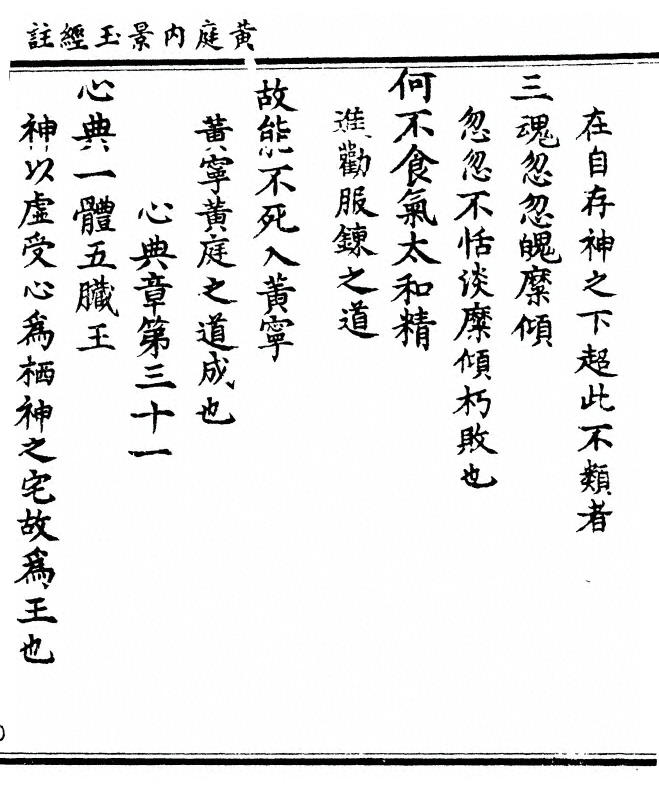 黃庭內景玉經註
在自存神之下超此不類者
三魂忽忽魄糜傾
忽忽不恬淡糜傾朽敗也
何不食氣太和精
進勸服鍊之道
故能不死入黃寧
黃寧黃庭之道成也
心典章第三十一
心典一體五臟王
神以虛受心爲栖神之宅故爲王也